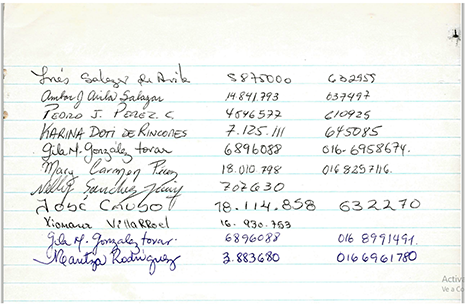 Inés Salazar de Avila 5875000 632955
Ambar J Avila Salazar 14841.793 637497
PEDRO J. PEREZ C. 4546572 610925
KARINA DOTI DE RINCONES 7.125.111 645085
Gila M. González tovar 6896088 016-6958674.
Mary Carmen Pérez 18.010.798 016 8257116.
Nelly Sánchez 707630
JOSÉ 18.114.858 632270
Xiomara Villarroel 16.930.753
Gila M. Gonzalez tovar. 6896088 016 8991491.
Maritza Rodríguez 3.883680 016 6961780
Activa
Ve a Co